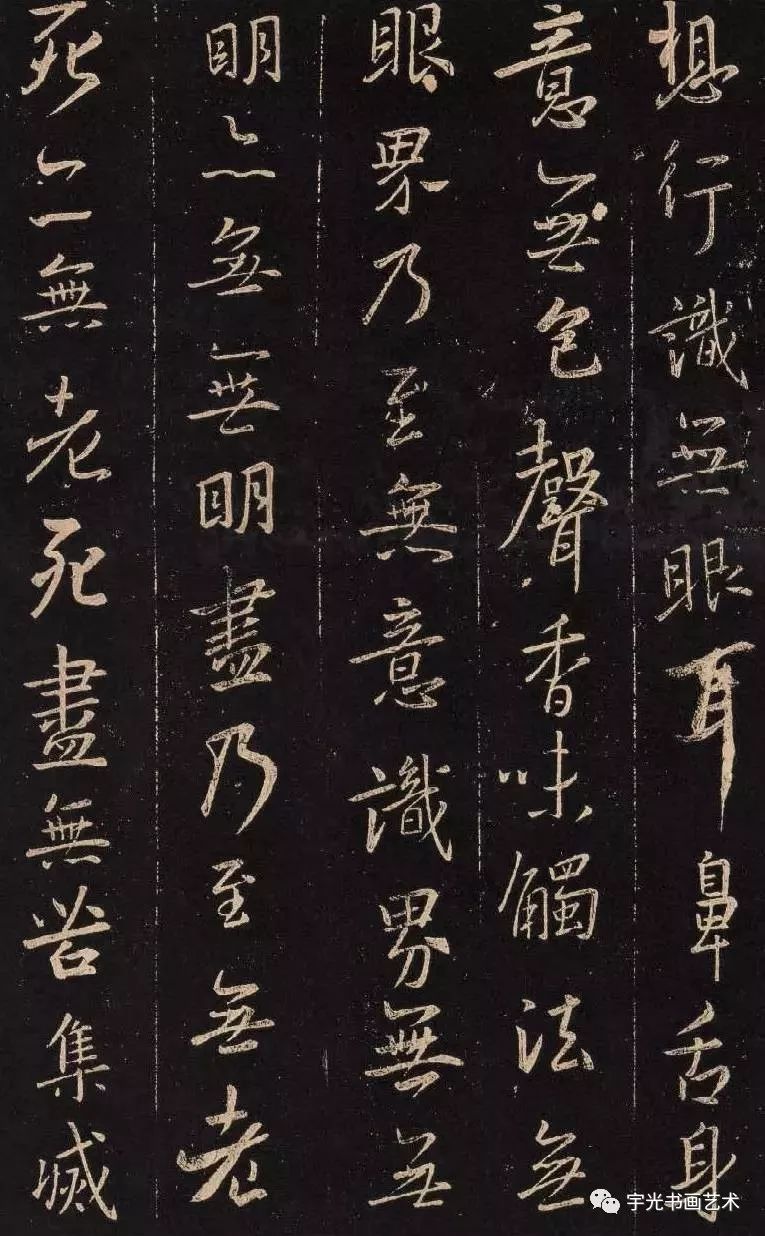 想行識無眼耳鼻舌身
意無色聲香味觸法無
眼界乃至無意識界無無
明亦無無明盡乃至無老
死亦無老死盡無苦集滅
宇光书画艺术